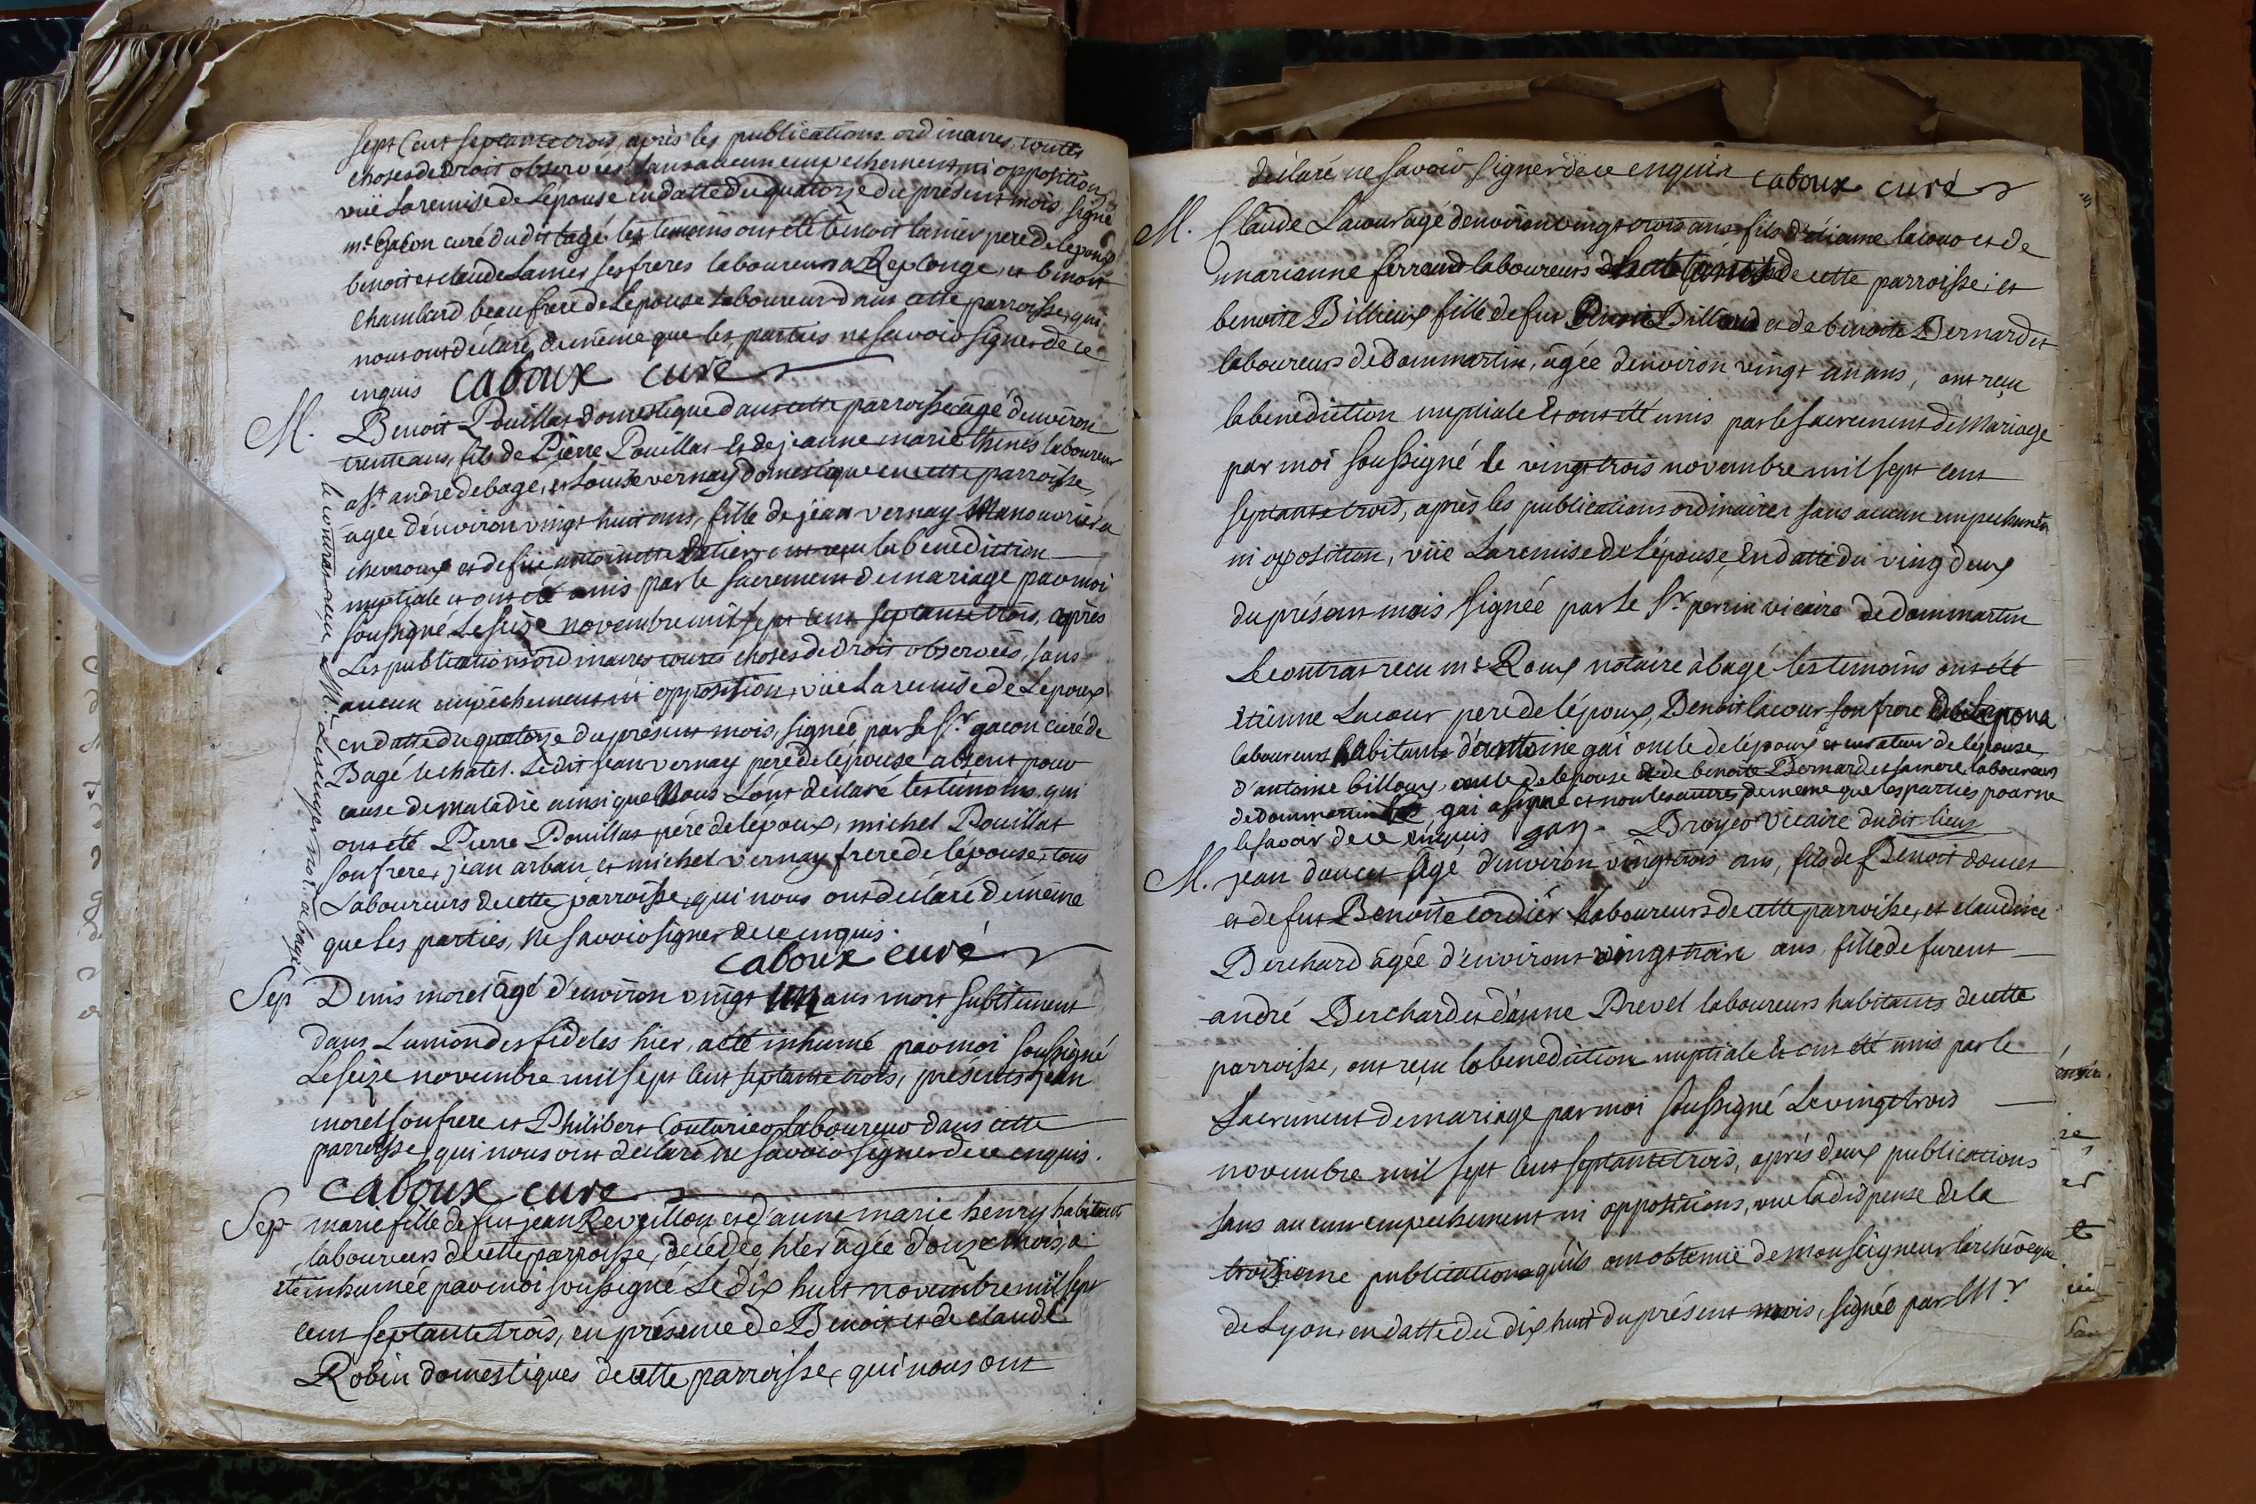 sept cent septante trois, après les publications ordinaires, toutes
choses de droit observées sans aucun empechement ni opposition
vüe la remise de l'épouse en datte du quatorze du présent mois signé
mr gacon curé dudit bagé les temoins ont été benoit lamier pere de lepoux
benoit et claude Lamier ses freres laboureurs a Replonge, et benoit
chambard beaufrere de lepouse laboureur dans cette parroisse, qui
nous ont déclaré de même que les parties ne savoir signer de ce
enquis caboux curé
M. Benoit Pouillat domestique dans cette parroisse agé d'environ
trente ans, fils de Pierre Pouillat et de jeanne marie thenes laboureur
a St andré de bagé, et Louise vernay domestique en cette parroisse,
agée d'environ vingt huit ans, fille de jean vernay Manouvrier a
chevroux et de fue antoinette ont reçu la benediction
nuptiale et ont été unis par le sacrement de mariage par moi
soussigné Le seize novembre mil sept cent septante trois, après
Les publications ordinaires toutes choses de droit observées, sans
aucun empéchement ni opposition, vüe la remise de Lepoux
en datte du quatorze du présent mois, signée par le Sr. gacon curé de
Bagé le chatel. Ledit jean vernay pere de lépouse absent pour
cause de maladie ainsi que Nous L'ont déclaré les témoins qui
ont été Pierre Pouillat pére de lepoux, michel Pouillat
son frere, jean arban et michel vernay frere de lépouse, tous
Laboureurs de cette parroisse, qui nous ont déclaré de même
que les parties, ne savoir signer de ce enquis.
caboux curé
le contrat recu Mr. not. a bagé
Sep Denis morel âgé d'environ vingt un ans mort subitement
dans Lunion des fideles hier, a été inhumé par moi soussigné
Le seize novembre mil sept cent septante trois, présents jean
morel son frere et Philibert Couturier laboureur dans cette
parroisse, qui nous ont déclaré ne savoir signer de ce enquis.
caboux curé
Sep marie fille de fut jean Revillon et d'anne marie henry habitants
laboureurs de cette parroisse, décédée hier âgée d'onze mois, a
été inhumée par moi soussigné Le dix huit novembre mil sept
cent septante trois, en présence de Benoit et de claude
Robin domestiques de cette parroisse, qui nous ont
déclaré ne savoir signer de ce enquis caboux curé
M. Claude Lacour agé d'environ vingt trois ans fils d'étienne lacour et de
marianne ferrand laboureurs de cette parroisse, et
benoite Billioux fille de fut et de benoite Bernardet
laboureurs de Dommartin, agée d'environ vingt un ans, ont reçu
la benediction nuptiale et ont été unis par le sacrement de Mariage
par moi soussigné le vingt trois novembre mil sept cent
septante trois, après les publications ordinaires sans aucun empechement
ni opposition, vüe La remise de lépouse en datte du vingt deux
du présent mois, signée par le Sr. perrin vicaire de dommartin
Le contrat reçu mr Roux notaire à bagé les temoins ont été
étienne Lacour pere de lépoux, Benoit lacour son frere
laboureurs habitants d'antoine gai oncle de lépoux et curateur de lépouse
d'antoine billoux, oncle de lépouse et de benoite Bernardet sa mere, laboureurs
de dommartin gai a signé et non les autres, de meme que les parties pour ne
le savoir de ce enquis gay. Broyer Vicaire dudit lieux
M. jean doucet âgé d'environ vingt trois ans, fils de Benoit doucet
et de fut Benoite cordier Laboureurs de cette parroisse, et claudine
Berchard agée d'environt vingt trois ans, fille de furent
andré Berchard et d'anne Prevel laboureurs habitants de cette
parroisse, ont reçu la benediction nuptiale et ont été unis par le
Sacrement de mariage par moi soussigné Le vingt trois
novembre mil sept cent septante trois, après deux publications
sans aucun empechement ni oppositions, vue la dispense de la
troisieme publication qu'ils ont obtenüe de monseigneur larchévêque
de Lyon, en datte du dix huit du présent mois, signée par Mr